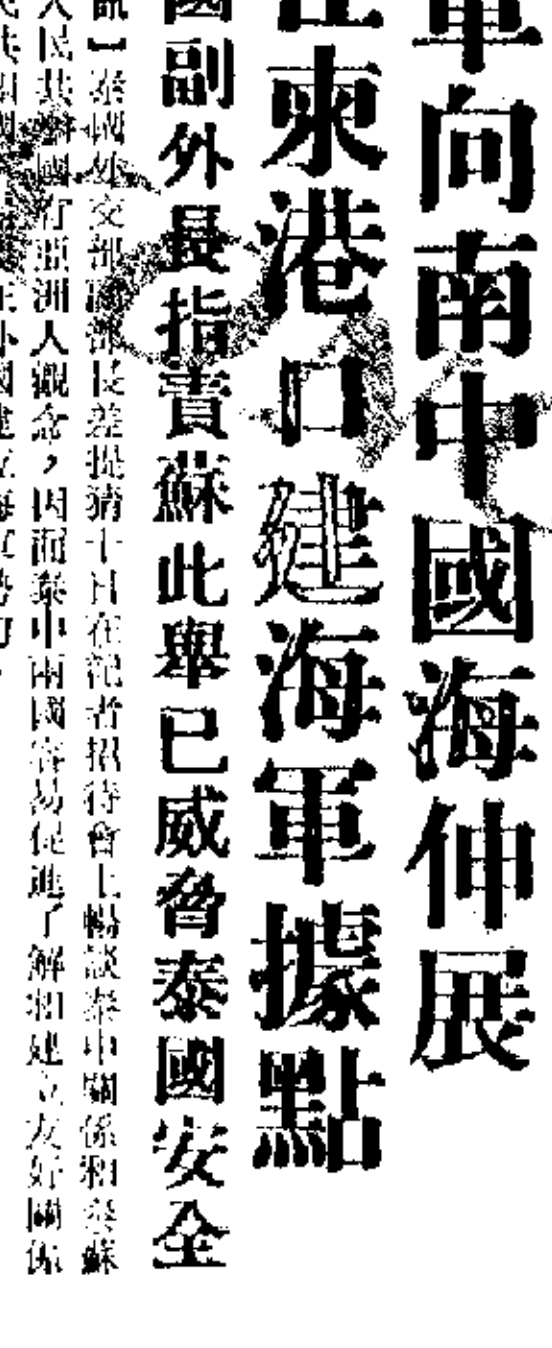 軍向南中國海伸展
在柬港口建海軍據點
國副外長指責蘇此舉已威脅泰國安全
訊】泰國外交部副部長差提猜十日在記者招待會上暢談泰中關係和泰蘇
人民共和國有亞洲人觀念，因而泰中兩國容易促進了解和建立友好關係